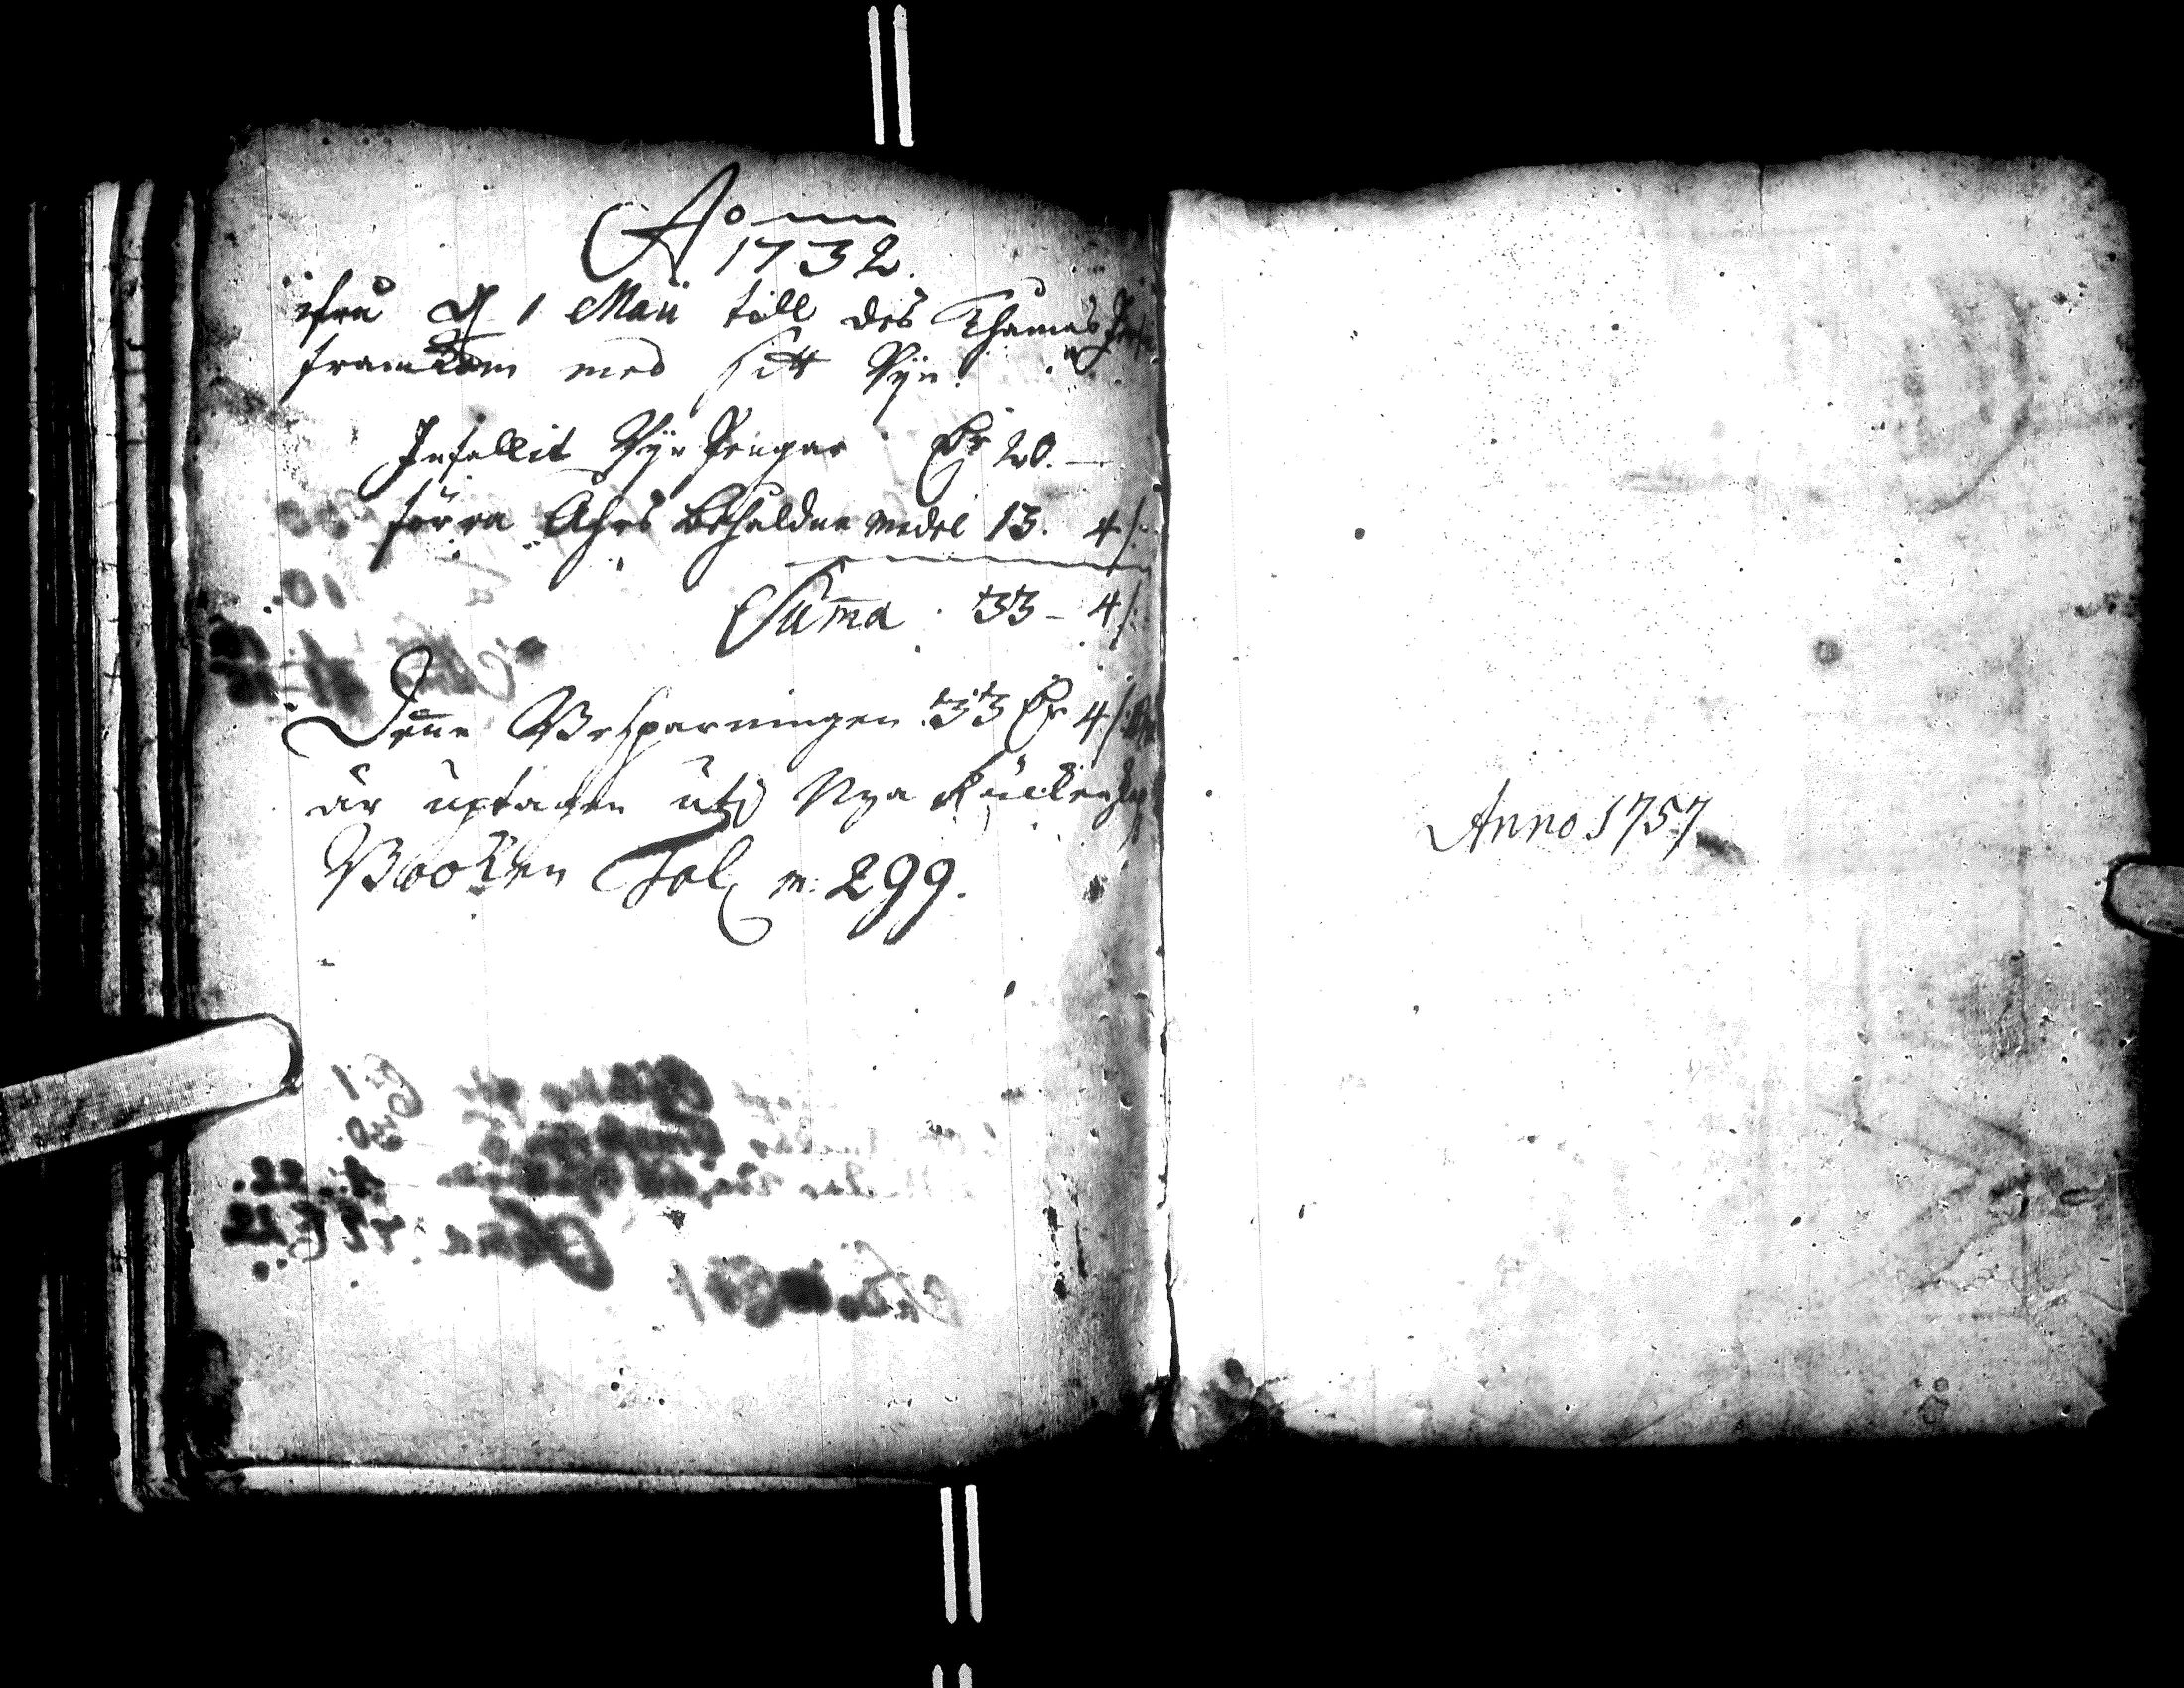 Ao
1732.
ifrå d 1 Maii till des Thomas
framkom med sitt Vijn.
Infallit Vijn Pengar Dr 20.—
förra Åhrs behåldne medel 13. 4/:
Summa. 33 – 4/:
Denne Besparningen 33 Dr 4/:
är uptagen uti Nya Räckensk
Booken Fol m: 299.
Anno 1757